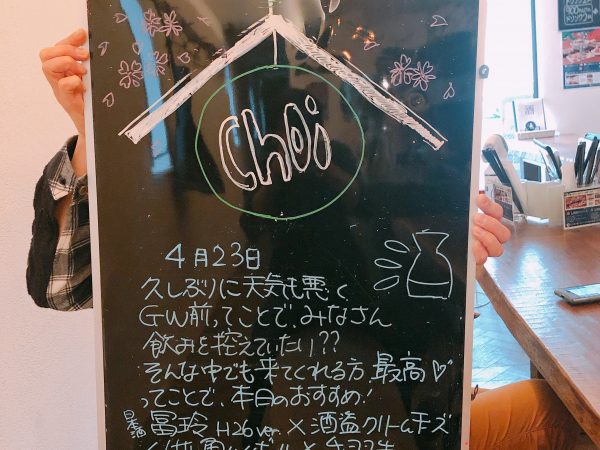 Choi
4月23日
久しぶりに天気も悪く
GW前ってことで、みなさん
飲みを控えていたり??
そんな中でも来てくれる方、最高♡
ってことで、本日のおすすめ!
日本酒 冨玲 H26ver. × 酒盗クリームチーズ